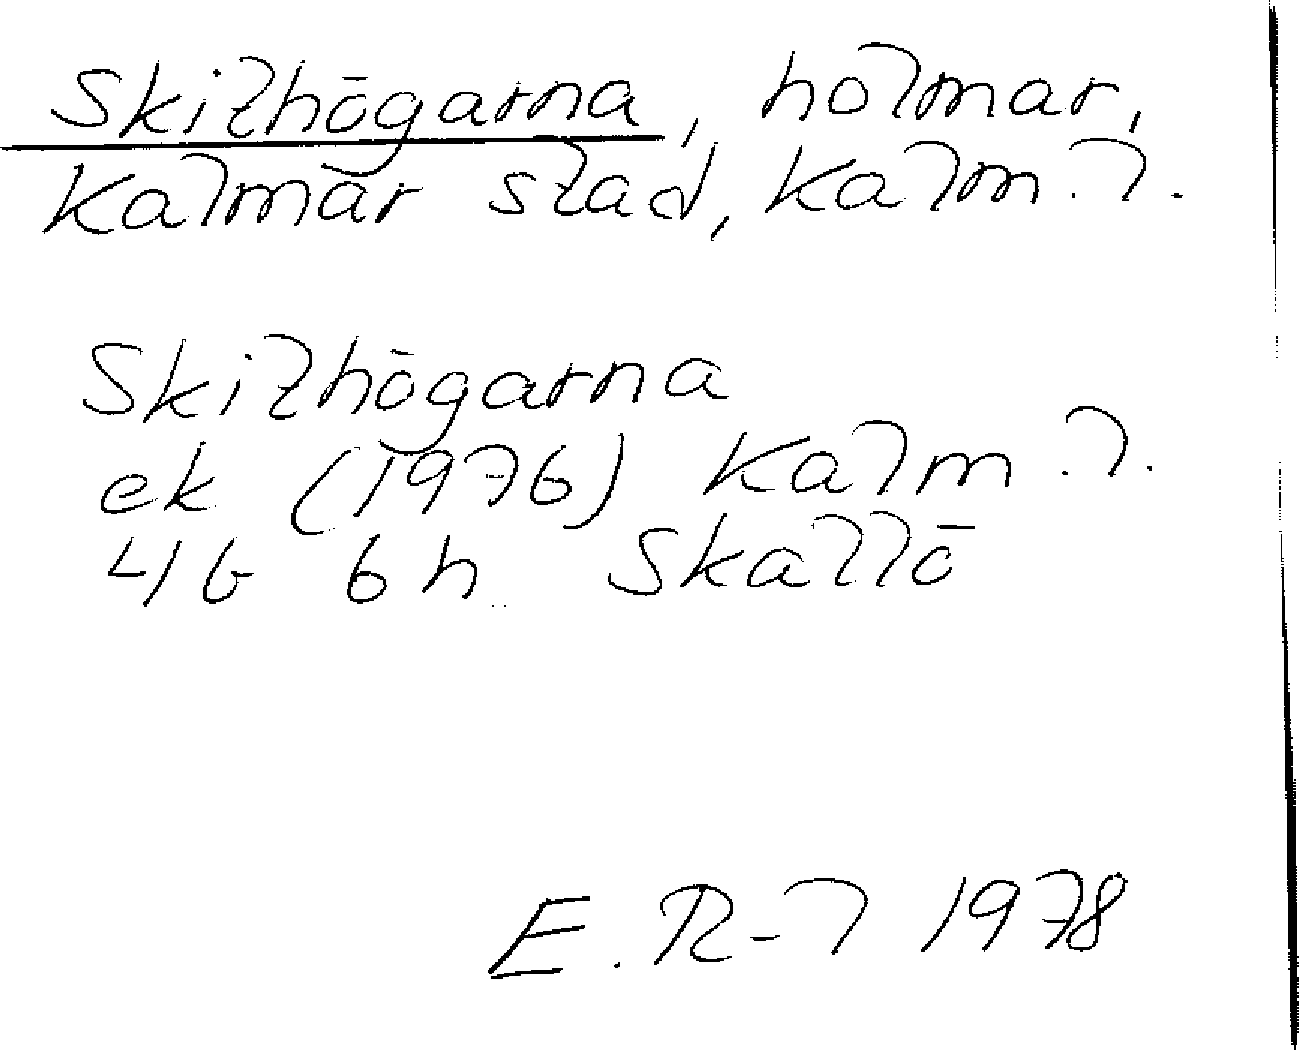 Skithögarna, holmar,
Kalmar stad, Kalm. l.
Skithögarna
ek (1976) Kalm. l.
4G 6h Skallö
E. R-l 1978